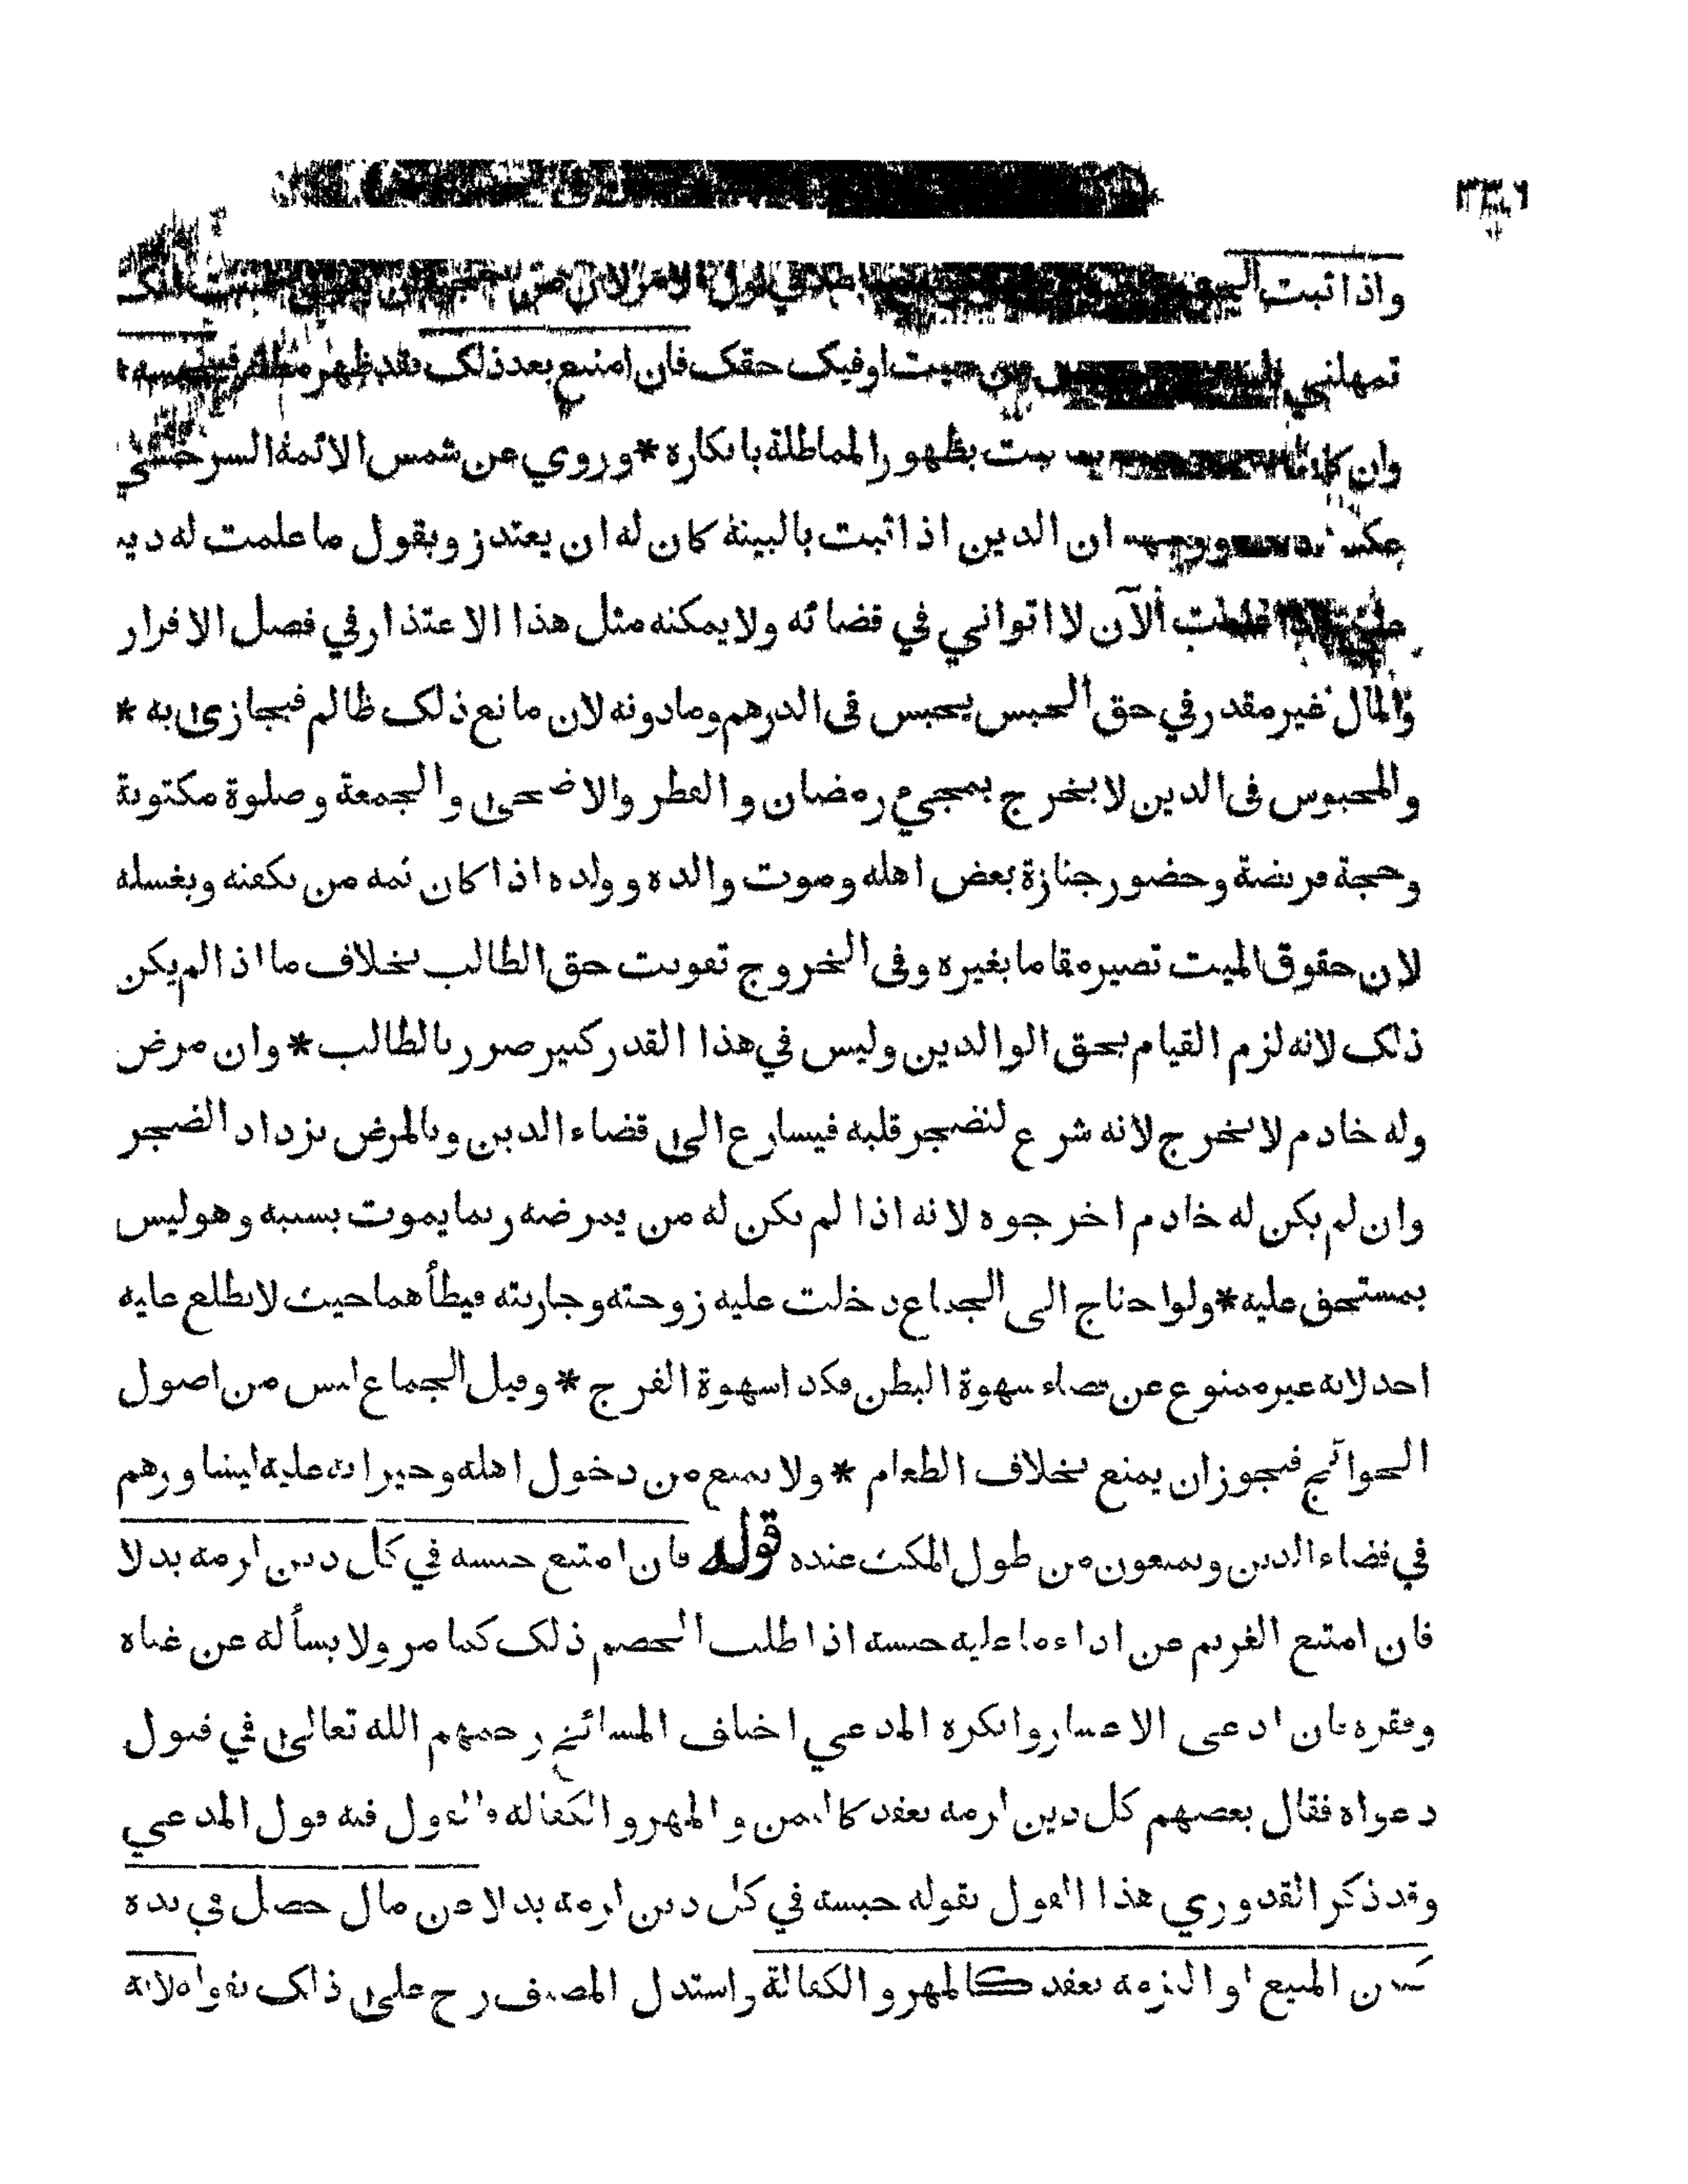 ٣٣٦
واذا ثبت
تمهلني اوفيك حقك فان امتنع بعد ذلك فقد ظهر
وان بظهور المماطلة بانكاره * وروي عن شمس الائمة السرخسي
ان الدين اذا ثبت بالبينة كان له ان يعتذر ويقول ما علمت له دينا
الآن لا اتواني في قضائه ولا يمكنه مثل هذا الاعتذار في فصل الاقرار
والمال غير مقدر في حق الحبس يحبس في الدرهم وما دونه لان مانع ذلك ظالم فيجازى به *
والمحبوس في الدين لا يخرج بمجيء رمضان والفطر والاضحى والجمعة وصلوة مكتوبة
وحجة فريضة وحضور جنازة بعض اهله وموت والده وولده اذا كان ثمه من يكفنه ويغسله
لان حقوق الميت تصير مقاما بغيره وفي الخروج تفويت حق الطالب بخلاف ما اذا لم يكن
ذلك لانه لزم القيام بحق الوالدين وليس في هذا القدر كبير ضرر بالطالب * وان مرض
وله خادم لا يخرج لانه شرع لتضجر قلبه فيسارع الى قضاء الدين وبالمرض يزداد الضجر
وان لم يكن له خادم اخرجوه لانه اذا لم يكن له من يمرضه ربما يموت بسببه وهو ليس
بمستحق عليه * ولو احتاج الى الجماع دخلت عليه زوجته وجاريته فيطأهما حيث لا يطلع عليه
احد لانه غير ممنوع عن قضاء شهوة البطن فكذا شهوة الفرج * وقيل الجماع ليس من اصول
الحوائج فيجوز ان يمنع بخلاف الطعام * ولا يمنع من دخول اهله وجيرانه عليه ليشاورهم
في قضاء الدين ويمنعون من طول المكث عنده قوله فان امتنع حبسه في كل دين لزمه بدلا
فان امتنع الغريم عن اداء ما عليه حبسه اذا طلب الخصم ذلك كما مر ولا يسأله عن غناه
وفقره فان ادعى الاعسار وانكره المدعي اختلف المشائخ رحمهم الله تعالى في قبول
دعواه فقال بعضهم كل دين لزمه بعقد كالثمن والمهر والكفالة فالقول فيه قول المدعي
وقد ذكر القدوري هذا القول بقوله حبسه في كل دين لزمه بدلا عن مال حصل في يده
كثمن المبيع او التزمه بعقد كالمهر والكفالة واستدل المصنف رح على ذلك بقوله لانه